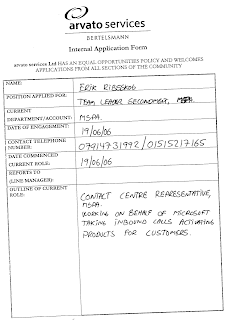 arvato services
BERTELSMANN
Internal Application Form
arvato services Ltd HAS AN EQUAL OPPORTUNITIES POLICY AND WELCOMES
APPLICATIONS FROM ALL SECTIONS OF THE COMMUNITY
NAME:
ERIK RIBSSKOG
POSITION APPLIED FOR:
TEAM LEADER SECONDMENT, MSPA.
CURRENT
DEPARTMENT/ACCOUNT:
MSPA.
DATE OF ENGAGEMENT:
19/06/06
CONTACT TELEPHONE
NUMBER:
07914731992/01515217165
DATE COMMENCED
CURRENT ROLE:
19/06/06
REPORTS TO
(LINE MANAGER):
OUTLINE OF CURRENT
ROLE:
CONTACT CENTRE REPRESENTATIVE,
MSPA.
WORKING ON BEHALF OF MICROSOFT
TAKING INBOUND CALLS ACTIVATING
PRODUCTS FOR CUSTOMERS.